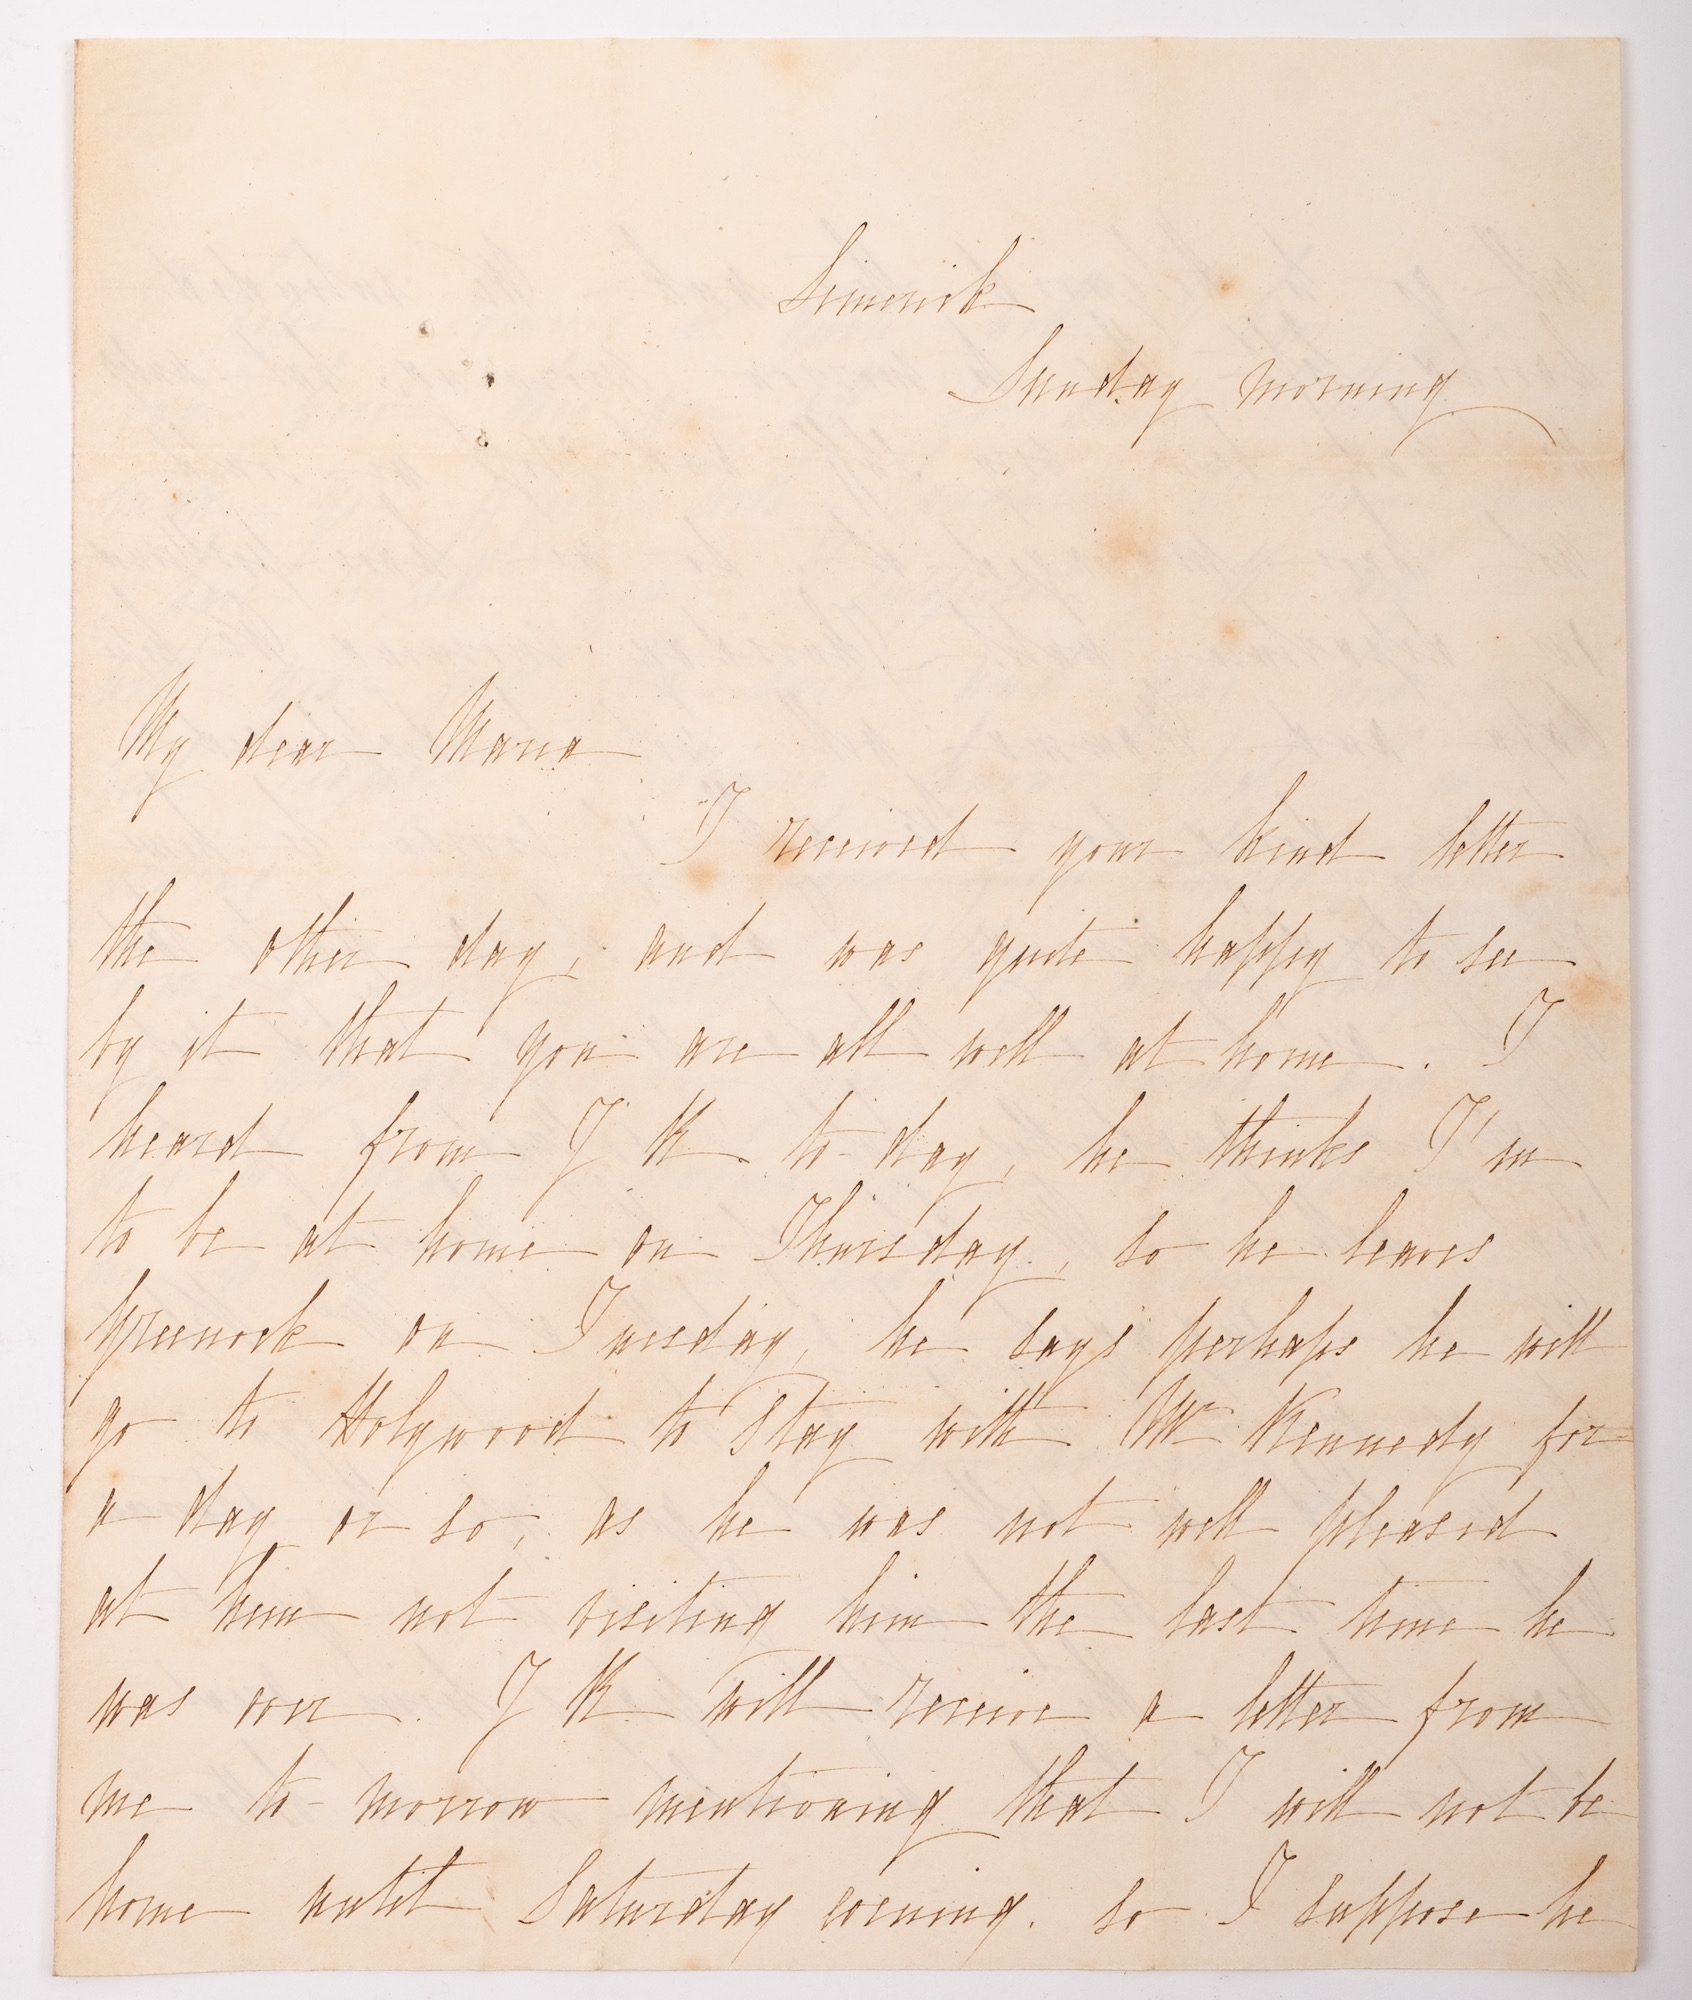 Limerick
Sunday morning
My dear Maria
I received your kind letter
the other day, and was quite happy to see
by it that you are all well at home. I
heard from J K to-day, he thinks I'm
to be at home on Thursday, so he leaves
Greenock on Tuesday, he says perhaps he will
go to Holywood to stay with Mr Kennedy for
a day or so, as he was not well pleased
at him not visiting him the last time he
was over. J K will receive a letter from
me to-morrow mentioning that I will not be
home until Saturday evening. so I suppose he